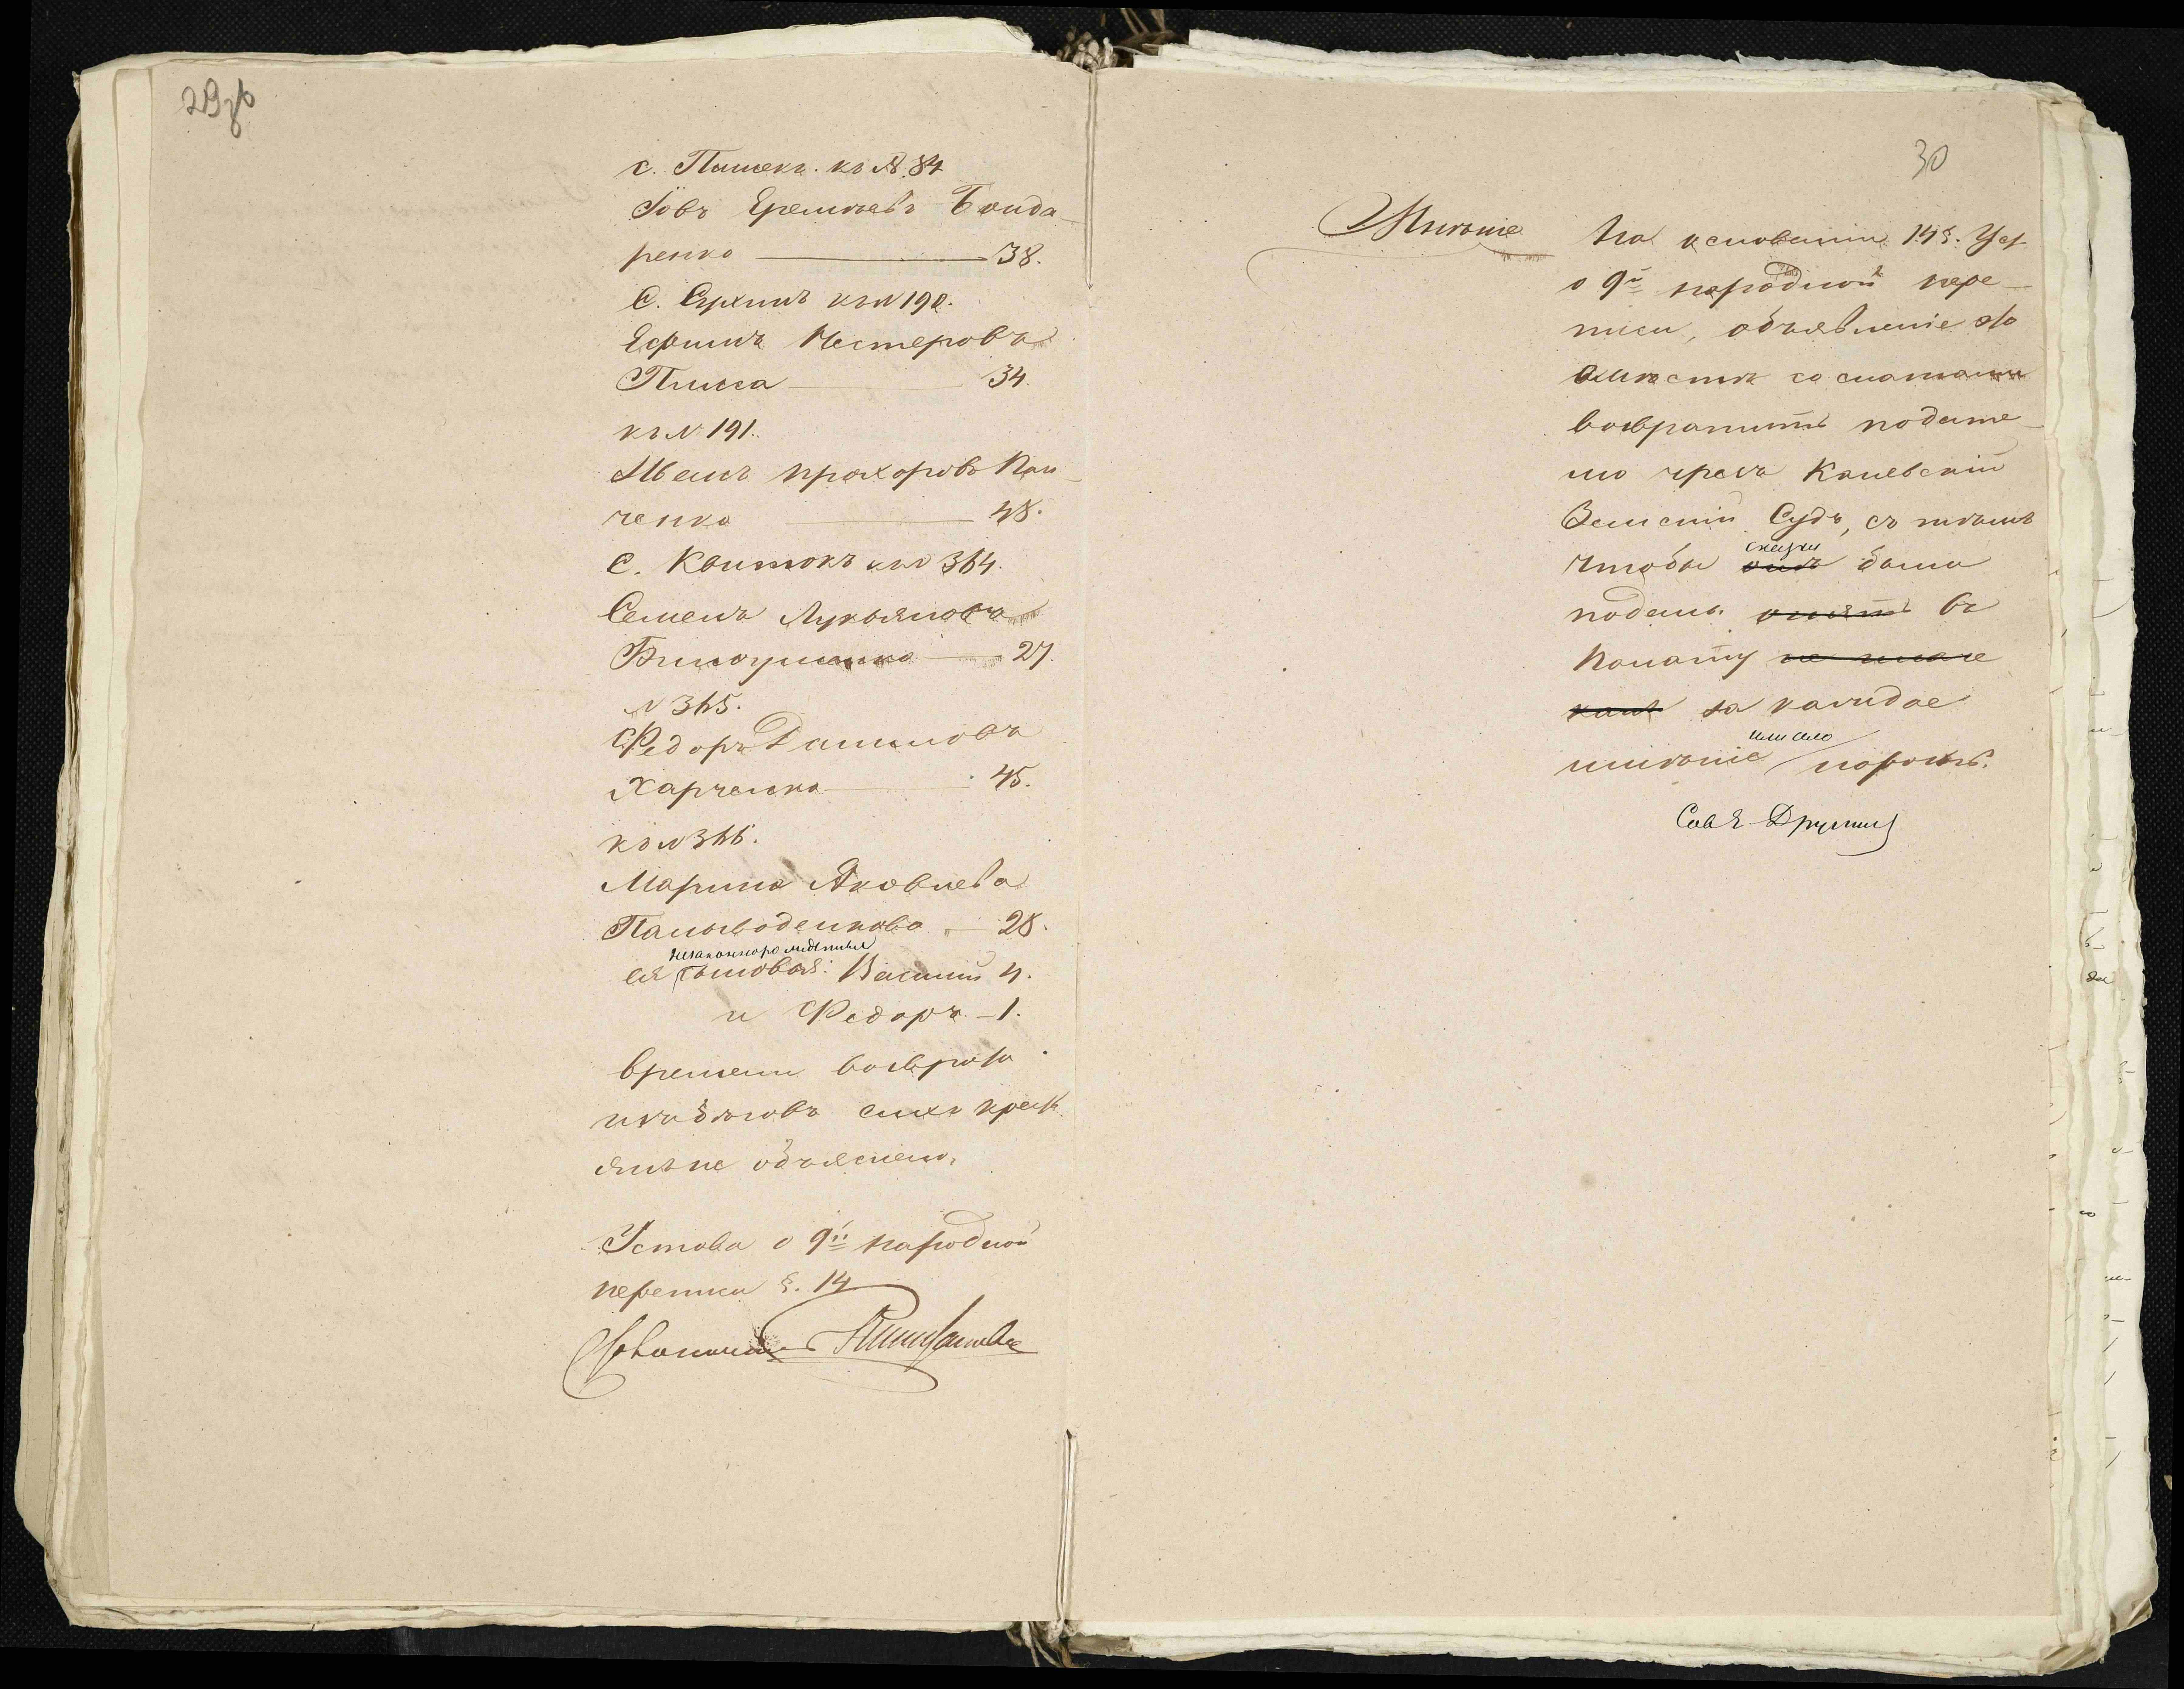 29 зв
с. Пѣшекъ. къ №. 84
Іовъ Еремѣевъ Бонда-
ренко — 38.
С. Сухинъ къ № 190.
Ефимъ Нестеровъ
Плиса — 34.
къ № 191.
Иванъ Прохоровъ Пан-
ченко — 48.
С. Квитокъ къ № 364.
Семенъ Лукьяновъ
27.
№ 365.
Федоръ Даниловъ
Харченко — 45.
къ № 366.
Марина Яковлева
28.
незаконнорожденные
ея сыновья: Василій 4.
и Федоръ — 1.
времени возврата
изъ бѣговъ сихъ крест
янъ не объяснено.
Устава о 9й народной
переписи §. 14
30
Мнѣніе
На основаніи 14 §. Уст
о 9й народной пере-
писи, объявленіе это
вмѣстѣ со сказками
возвратить подате-
лю чрезъ Каневскій
Земскій Судъ, съ тѣмъ
сказки
чтобы онѣ были
поданы опять въ
Палату не иначе
какъ за каждое
или село
имѣніе порознь.